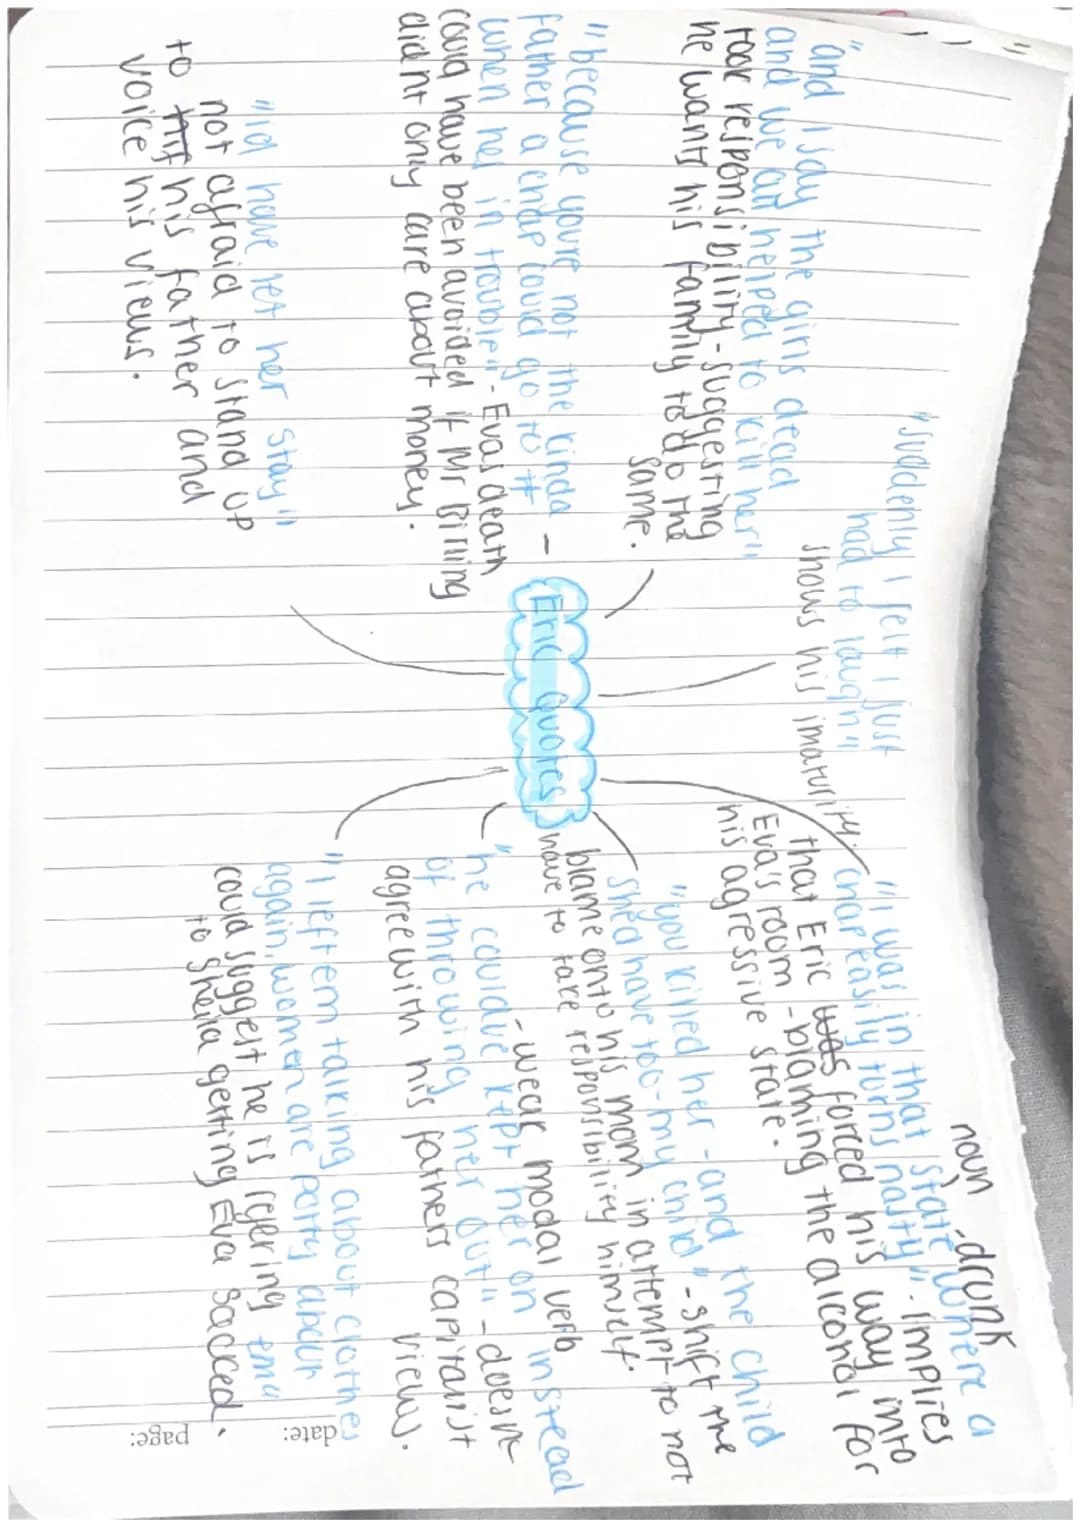 Eric Quotes
"suddenly I felt I just
had to laugh"
shows his imaturity.
"and I say the girls dead
and we all helped to kill her"
took responsibility - suggesting
he wants his family to do the
same.
"because youre not the kinda
father a chap could go to
when hes in trouble" - Evas death
could have been avoided if Mr Birling
didnt only care about money.
"id have let her stay"
not afraid to stand up
to his father and
voice his views.
noun - drunk
"I was in that state where a
chap easily turns nasty" - implies
that Eric was forced his way into
Eva's room - blaming the alcohol for
his agressive state.
"you killed her - and the child
shed have too - my child" - shift the
blame onto his mom in attempt to not
have to take responsibility himself.
- weak modal verb
"he couldve kept her on instead
of throwing her out" - doesnt
agree with his fathers capitalist
views.
"I left em talking about clothes
again, women are potty about em"
could suggest he is refering
to Sheila getting Eva sacked.
date:
page: